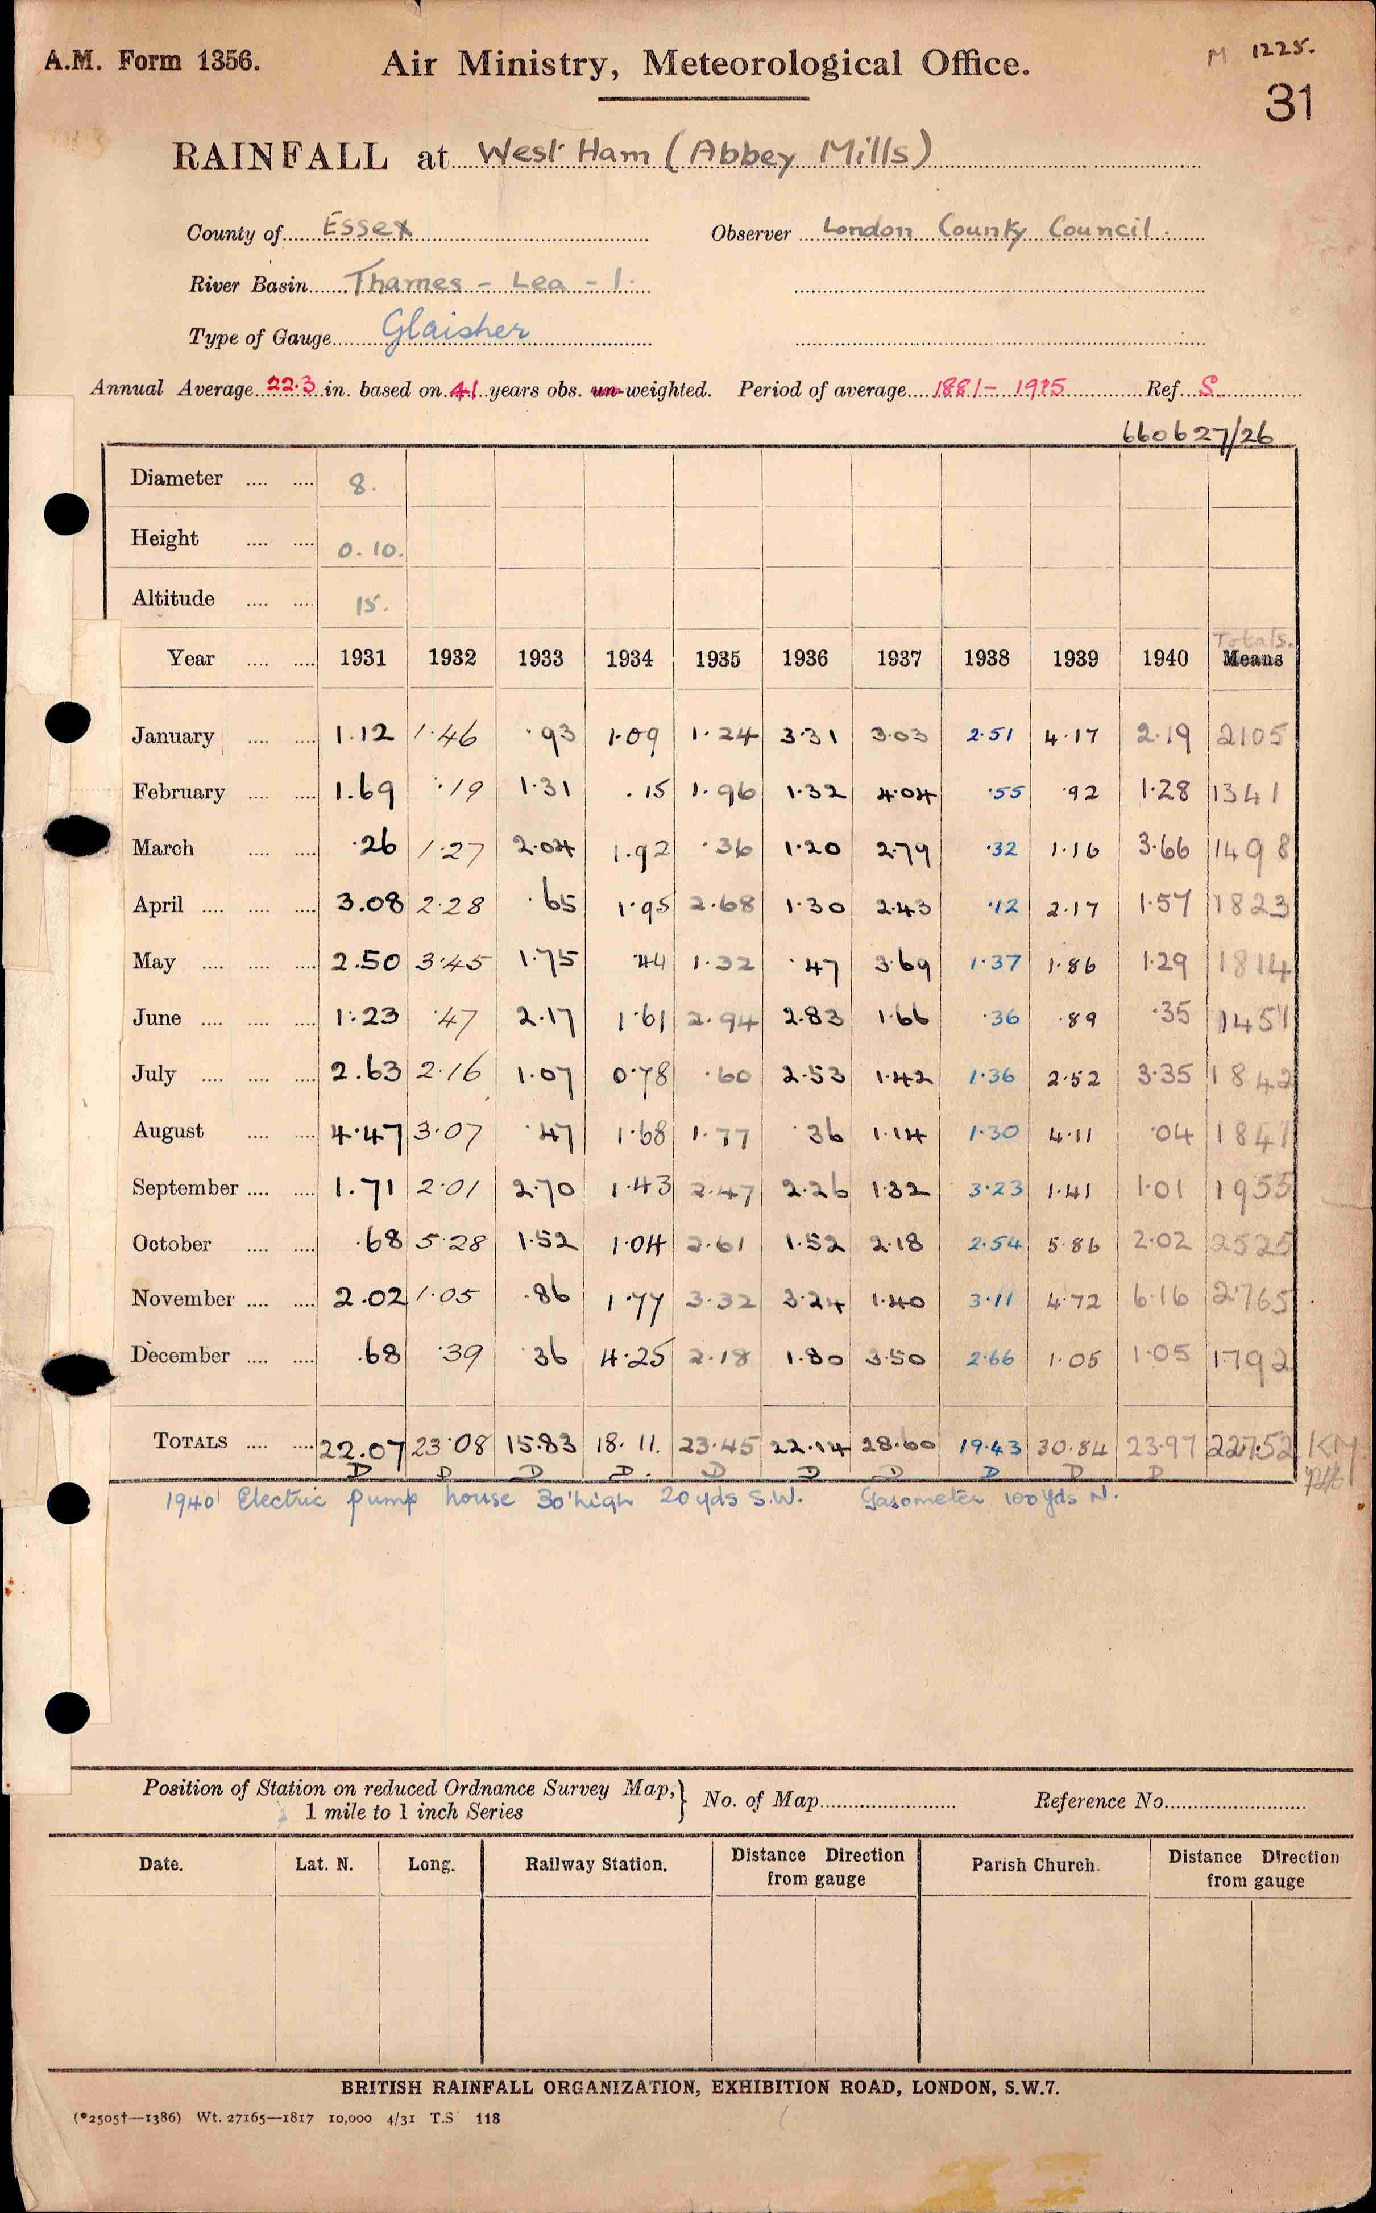 A.M. Form 1356.
Air Ministry, Meteorological Office.
M 1225.
31
RAINFALL at West Ham (Abbey Mills)
County of Essex Observer London County Council.
River Basin Thames - Lea - 1.
Type of Gauge Glaisher
Annual Average 22.3 in. based on 41 years obs. un-weighted. Period of average 1881- 1915 Ref. S.
660627/26
Diameter .... .... 8.
Height .... .... 0.10.
Altitude .... .... 15.
Totals.
Year .... .... 1931 1932 1933 1934 1935 1936 1937 1938 1939 1940 Means
January .... .... 1.12 1.46 .93 1.09 1.24 3.31 3.03 2.51 4.17 2.19 2105
February .... .... 1.69 .19 1.31 .15 1.96 1.32 4.04 .55 .92 1.28 1341
March .... .... .26 1.27 2.04 1.92 .36 1.20 2.79 .32 1.16 3.66 1498
April .... .... .... 3.08 2.28 .65 1.95 2.68 1.30 2.43 .12 2.17 1.57 1823
May .... .... .... 2.50 3.45 1.75 .44 1.32 .47 3.69 1.37 1.86 1.29 1814
June .... .... .... 1.23 .47 2.17 1.61 2.94 2.83 1.66 .36 .89 .35 1451
July .... .... .... 2.63 2.16 1.07 0.78 .60 2.53 1.42 1.36 2.52 3.35 1842
August .... .... 4.47 3.07 .47 1.68 1.77 .36 1.14 1.30 4.11 .04 1841
September .... .... 1.71 2.01 2.70 1.43 2.47 2.26 1.32 3.23 1.41 1.01 1955
October .... .... .68 5.28 1.52 1.04 2.61 1.52 2.18 2.54 5.86 2.02 2525
November .... .... 2.02 1.05 .86 1.77 3.32 3.24 1.40 3.11 4.72 6.16 2765
December .... .... .68 .39 .36 4.25 2.18 1.80 3.50 2.66 1.05 1.05 1792
TOTALS .... .... 22.07 23.08 15.83 18.11. 23.45 22.14 28.60 19.43 30.84 23.97 22752
D D D D. D D D D D D
1940 Electric pump house 30' high 20 yds S.W. Gasometer 100 yds N.
Position of Station on reduced Ordnance Survey Map, } No. of Map Reference No.
1 mile to 1 inch Series
Date. Lat. N. Long. Railway Station. Distance Direction from gauge Parish Church. Distance Direction from gauge
BRITISH RAINFALL ORGANIZATION, EXHIBITION ROAD, LONDON, S.W.7.
(*2505†—1386) Wt. 27165—1817 10,000 4/31 T.S 118